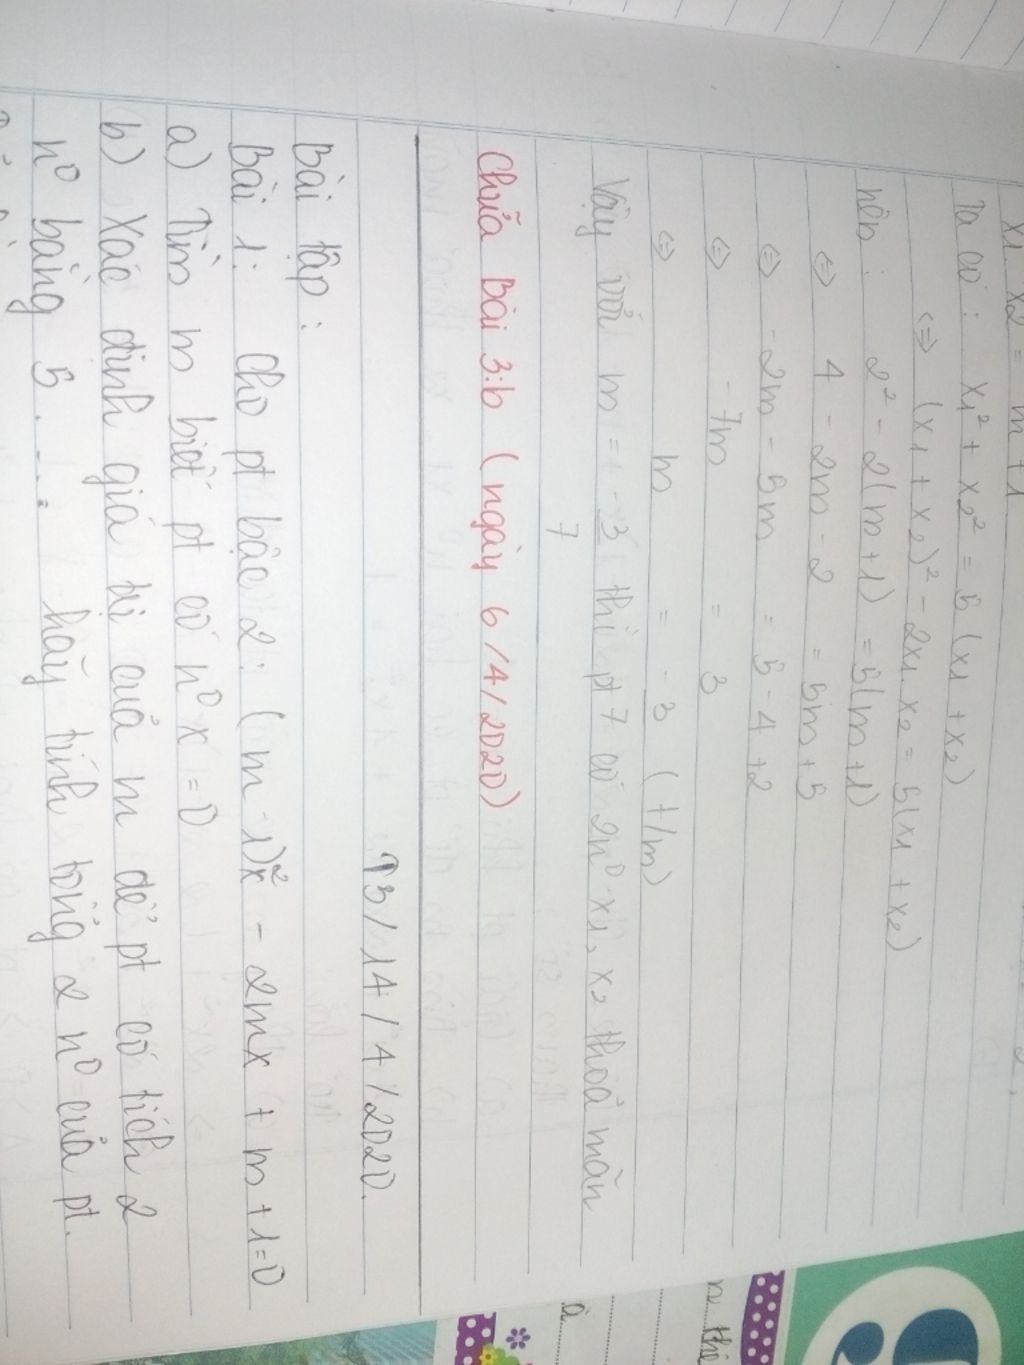 x1. x2 = m + 1
Ta có : x1² + x2² = 5 (x1 + x2)
<=> (x1 + x2)² - 2x1. x2 = 5(x1 + x2)
nên : 2² - 2(m + 1) = 5(m + 1)
<=> 4 - 2m - 2 = 5m + 5
<=> - 2m - 5m = 5 - 4 + 2
<=> - 7m = 3
<=> m = - 3 (t/m)
Vậy với m = -3 thì pt 7 có 2n⁰ x1, x2 thoả mãn
7
Chữa Bài 3:b (ngày 6/4/2020)
T3 / 14 / 4 / 2020.
Bài tập :
Bài 1: Cho pt bậc 2: (m - 1)x² - 2mx + m + 1 = 0
a) Tìm m biết pt có n⁰ x = 0
b) Xác định giá trị của m để pt có tích 2
n⁰ bằng 5. hãy tính tổng 2 n⁰ của pt.
n thi
à